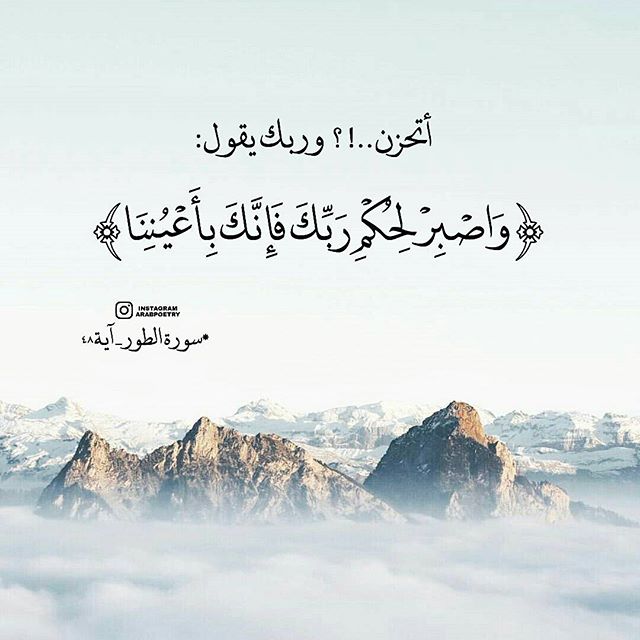 أتحزن..!؟ وربك يقول:
﴿وَاصْبِرْ لِحُكْمِ رَبِّكَ فَإِنَّكَ بِأَعْيُنِنَا﴾
INSTAGRAM
ARABPOETRY
*سورة الطور_آية٤٨